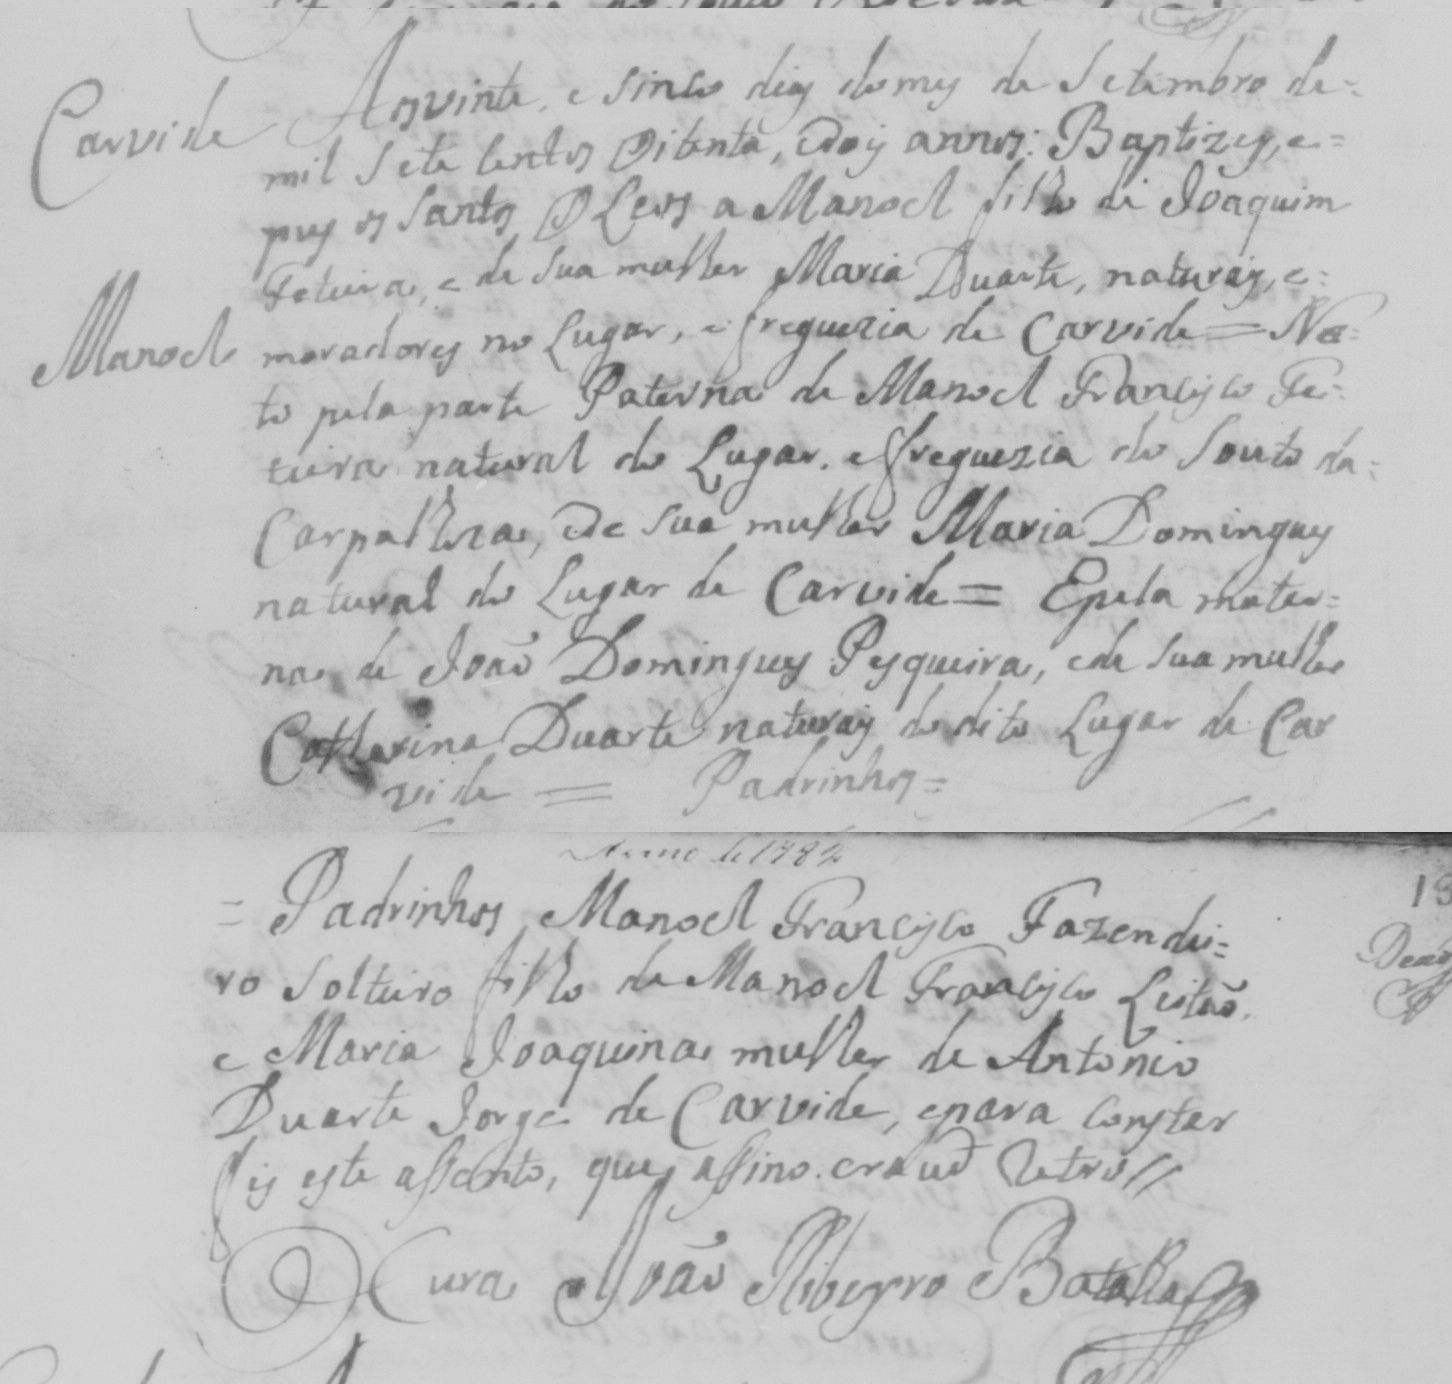 Carvide
Aos vinte, e sinco dias do mes de Setembro de=
mil Sete Centos Oitenta, e dois annos: Baptizey, e=
pus os Santos OLeos a Manoel filho de Joaquim
Feteira, e de sua mulher Maria Duarte, naturais, e=
Manoel
moradores no Lugar, e freguezia de Carvide = Ne=
to pela parte Paterna de Manoel Francisco Fe=
teira natural do Lugar, e freguezia do Souto da=
Carpalhoza, e de sua mulher Maria Domingues
natural do Lugar de Carvide = E pela mater=
na de João Domingues Pesqueira, e de sua mulher
Catharina Duarte naturais do dito Lugar de Car
vide = Padrinhos=
Anno de 1782
= Padrinhos Manoel Francisco Fazendei=
ro Solteiro filho de Manoel Francisco Leitão,
e Maria Joaquina mulher de Antonio
Duarte Jorge de Carvide, e para constar
fis este assento, que assino. era ud Retro//
O Cura João Ribeyro Batalha